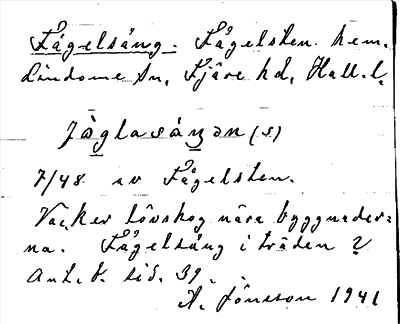 Fågelsång. Fågelsten hem.
Lindome sn, Fjäre hd, Hall. l.
fågḷasáŋən (s)
7/48 av Fågelsten.
Vacker lövskog nära byggnader-
na. Fågelsång i träden ?
Ant. b. sid. 39.
A. Jönsson 1941